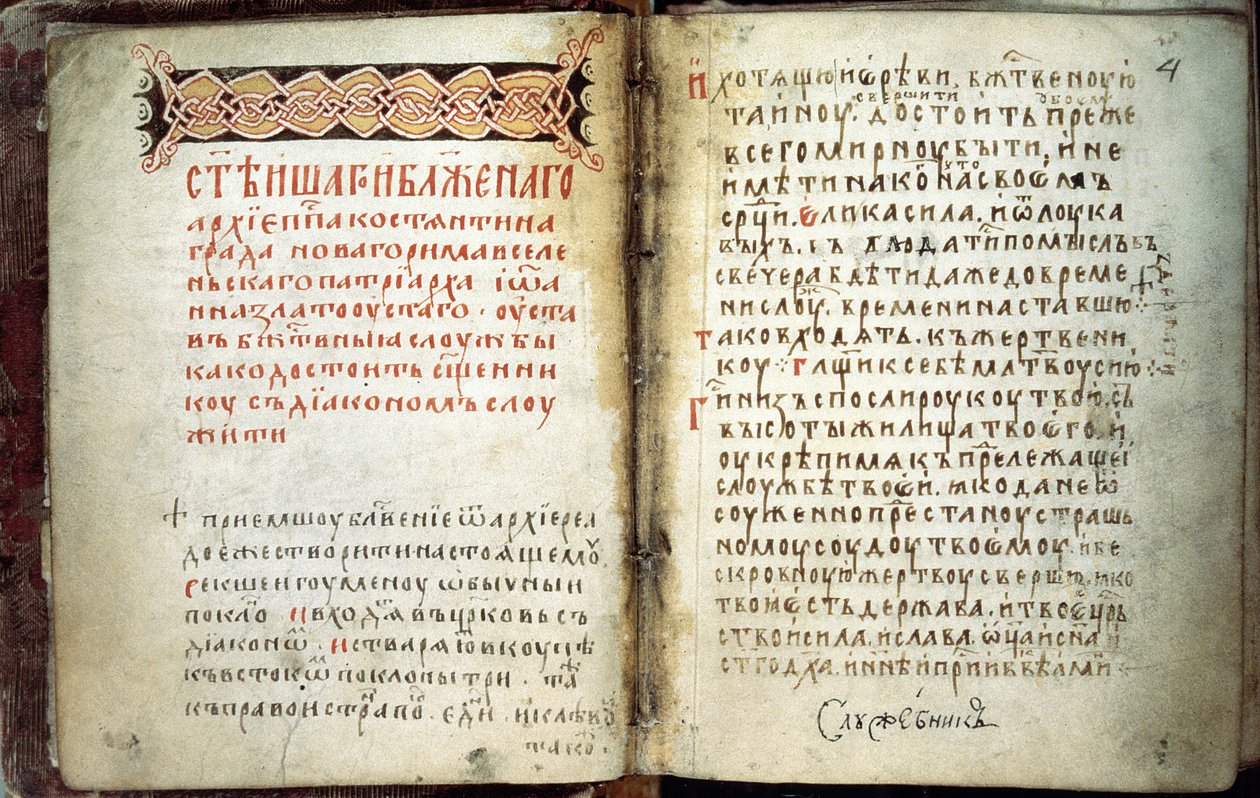 СТ҃ѢИШАГО И БЛ҃ЖЕНАГО
АРХЇЕПП҃А КОСТѦНТИНА
ГРАДА НОВАГО РИМА ВСЕЛЕ
НЬСКАГО ПАТРЇАРХА ІѠА
ННА ЗЛАТООУСТАГО · ОУСТА
ВЪ БЖ҃ТВНЫІА СЛОУЖБЫ
КАКО ДОСТОИТЬ СЩ҃ЕННИ
КОУ СЪ ДЇАКОНОМЪ СЛОУ
ЖИТИ
ПРИЕМШОУ БЛ҃ВЕНЇЕ Ѿ АРХЇЕРЕА
ДОЕЖЕ СТВОРИТИ НАСТОѦЩЕМОУ
РЕКШЕ ИГОУМЕНОУ ѠБЫЧНЫИ
ПОКЛО И ВХОДѦ ВЪ ЦР҃КОВЬ СЪ
ДЇАКОНѠ · И СТВАРѦЮ ВКОУПѢ
КЪ ВЪСТОКѠ ПОКЛОНЫ ТРИ · ТА
КЪ ПРАВОИ СТРАН ПО · ЕДИ · И К ЛѢВО
ТАКО ·
4
И ХОТѦЩЮ ІѠРѢВИ · БЖ҃ТВЕНОУЮ
СВЕРШИТИ
ТАИНОУ · ДОСТОИТЬ ПРЕЖЕ
ВСЕГО МИРНОУ БЫТИ · И НЕ
ИМѢТИ НА КО НА СВОѠЛѦЪ
СРЦ҃И · ѠЛИКА СИЛА · И Ѿ ЛОУКА
ВЫХЪ · СЪ БЛЮДАТИ ПОМЫСЛЪ
СВЕЧЕРА БДѢТИ ДАЖЕ ДО ВРЕМЕ
НИ СЛОУ · ВРЕМЕНИ НАСТАВШЮ
ТАКО ВХОДѦТЬ · КЪ ЖЕРТВЕНИ
КОУ ГЛЩ҃И К СЕБѢ М҃ТВОУ СИЮ
Г҃И НИЗЪПОСЛИ РОУКОУ ТВОЮ · СЪ
ВЫСОТЫ ЖИЛИЩА ТВОѠГО · И
ОУКРѢПИ МѦ КЪ ПРЕЛЕЖАЩЕИ
СЛОУЖБѢ ТВОѠИ · ІАКО ДА НЕѠ
СОУЖЕННО ПРЕСТАНОУ СТРАШЬ
НОМОУ СОУДОУ ТВОѠМОУ · И БЕ
СКРОВНОУЮ ЖЕРТВОУ СВЕРШЮ · ІАКО
ТВОІА ѠСТЬ ДЕРЖАВА · И ТВОѠ ЦР҃Ь
СТВО И СИЛА · И СЛАВА · ѠЦ҃А И СН҃А И
СТ҃ГО ДХ҃А · И НН҃Ѣ И ПРИ И В ВѢ АМИ
Служебникъ